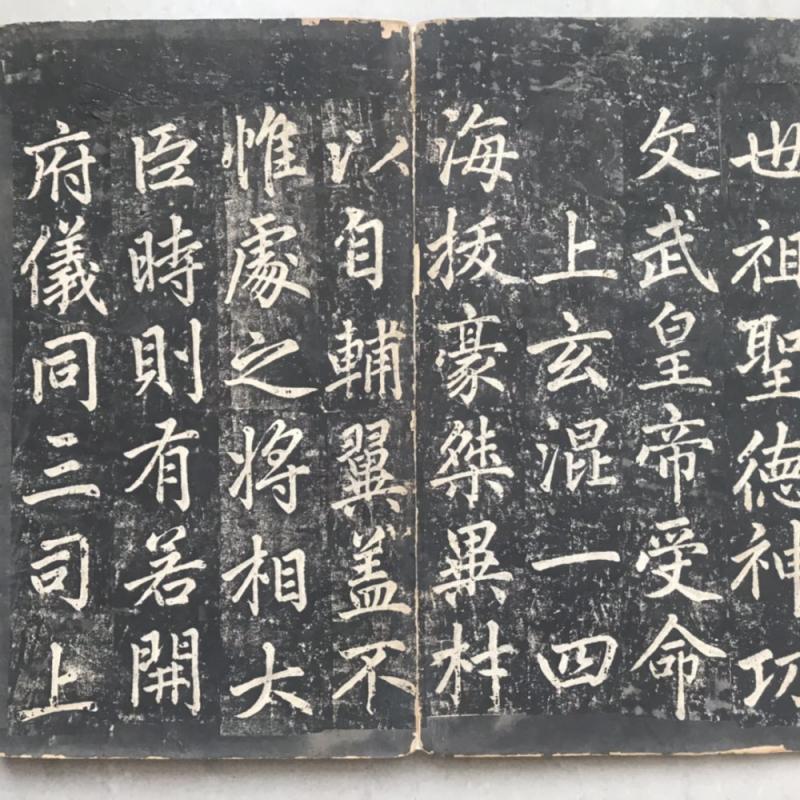 世祖聖德神功
文武皇帝受命
上玄混一四
海拔豪桀異材
以自輔翼盖不
惟處之將相大
臣時則有若開
府儀同三司上